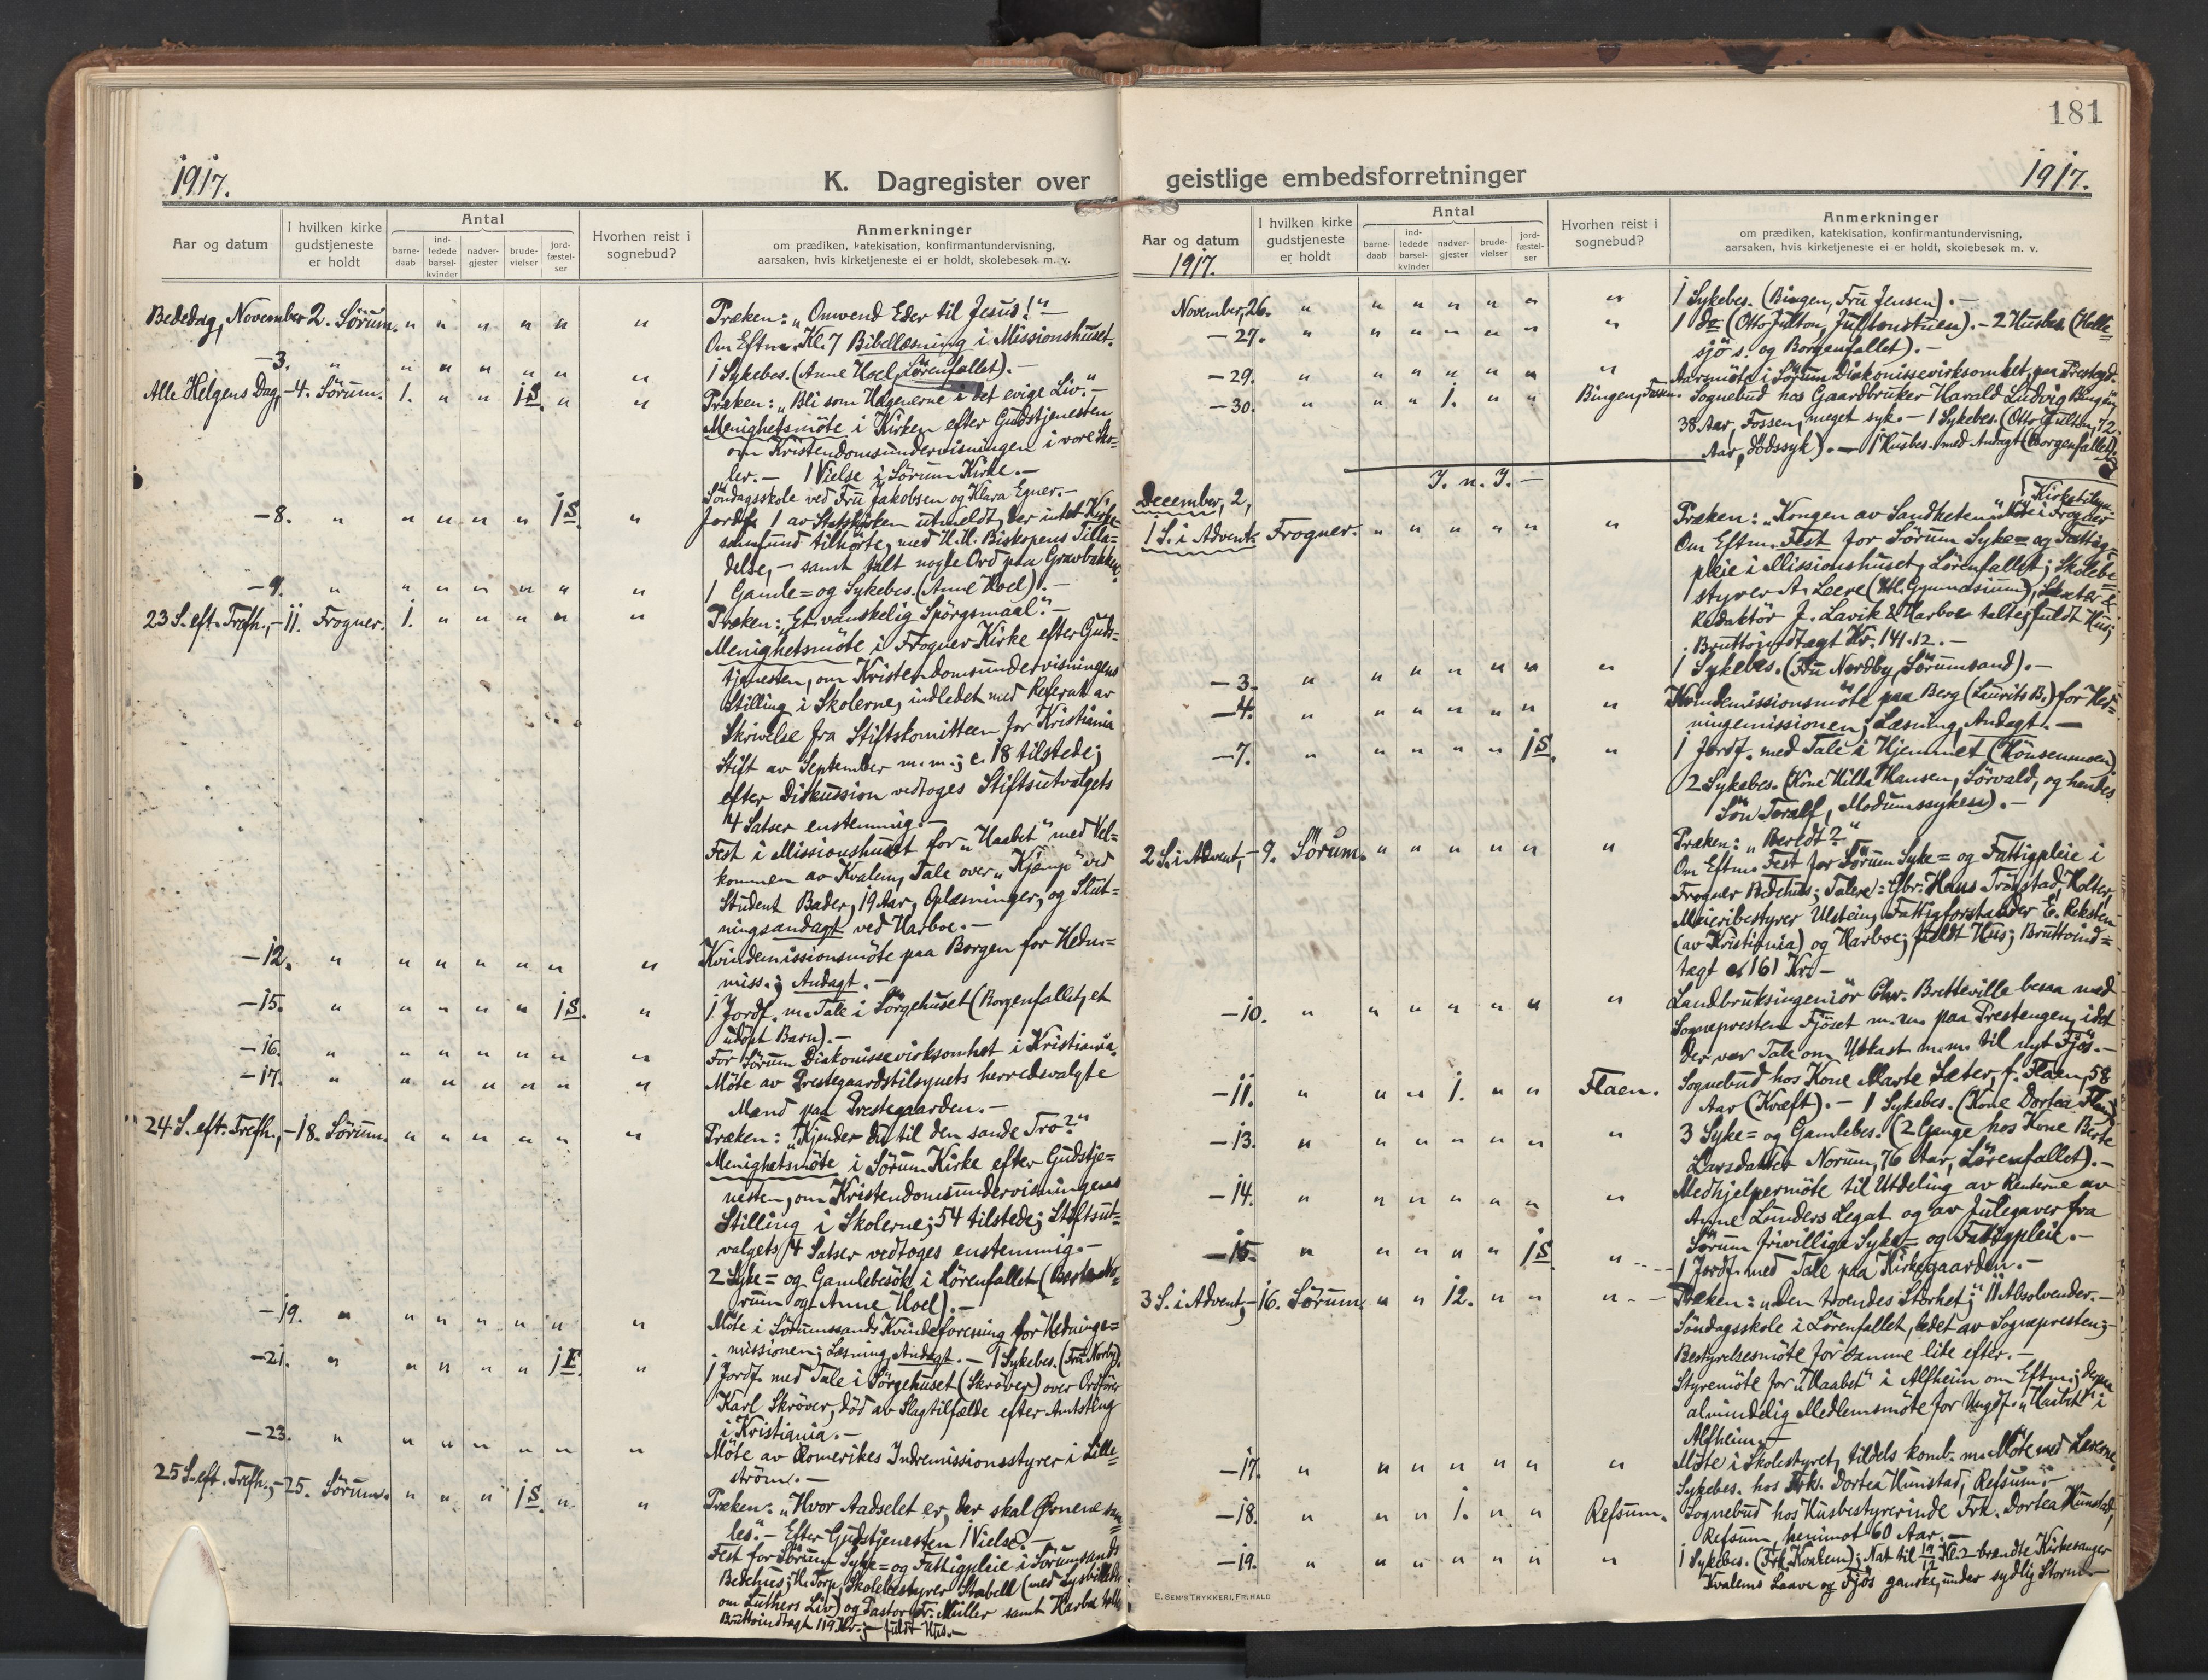 181
1917.
K. Dagregister over
geistlige embedsforretninger
1917.
Aar og datum
I hvilken kirke gudstjeneste er holdt
Antal
barne-daab
ind-ledede barsel-kvinder
nadver-gjester
brude-vielser
jord-fæstel-ser
Hvorhen reist i sognebud?
Anmerkninger
om prædiken, katekisation, konfirmantundervisning,
aarsaken, hvis kirketjeneste ei er holdt, skolebesøk m. v.
Bededag, November 2. Sörum. " " " " " " Præken: "Omvend Eder til Jesus!" –
Om Eftm. Kl. 7 Bibellæsning i Missionshuset.
– 3. " " " " " " " 1 Sykebes. (Anne Hoel, Lörenfallet). –
Alle Helgens Dag, – 4. Sörum. 1. " " 1 S. " " Præken: "Bli som i det evige Liv." –
Menighetsmöte i Kirken efter Gudstjenesten
om Kristendomsundervisningen i vore Sko-
ler. – 1 Vielse i Sörum Kirke. –
Söndagsskole ved Fru Jakobsen og Klara Egner. –
– 8. " " " " " 1 S. " Jordf. 1 av Statskirken utmeldt, der intet Kirke-
samfund tilhörte, med H.H. Biskopens Tilla-
delse, – samt talt nogle Ord paa Gravbakken.
– 9. " " " " " " " 1 Gamle= og Sykebes. (Anne Hoel). –
23 S. eft. Trefh., – 11. Frogner. 1. " " " " " Præken: "Et vanskelig Spörgsmaal." –
Menighetsmöte i Frogner Kirke efter Guds-
tjenesten, om Kristendomsundervisningens
Stilling i Skolerne, indledet med Referat av
Skrivelse fra Stiftskomitteen for Kristiania
Stift av September m.m.; c. 18 tilstede;
efter Diskussion vedtoges Stiftsutvalgets
4 Satser enstemmig. –
Fest i Missionshuset for "Haabet" med Vel-
kommen av Kvalem, Tale over "Kjæmp" ved
Student Bader, 19 Aar, Oplæsninger, og Slut-
ningsandagt ved Harboe. –
– 12. " " " " " " " Kvindemissionsmöte paa Borgen for Hedn-
miss.; Andagt. –
– 15. " " " " " 1 S. " 1 Jordf. m. Tale i Sörgehuset (Borgenfallet, et
udöpt Barn). –
– 16. " " " " " " " For Sörum Diakonissevirksomhet i Kristiania.
– 17. " " " " " " " Möte av Prestegaardstilsynets herredsvalgte
Mænd paa Prestegaarden. –
24 S. eft. Trefh., – 18. Sörum. " " " " " " Præken: "Kjender du til den sande Tro?"
Menighetsmöte i Sörum Kirke efter Gudstje-
nesten, om Kristendomsundervisningens
Stilling i Skolerne; 54 tilstede; Stiftsut-
valgets 4 Satser vedtoges enstemmig. –
2 Syke= og Gamlebesök i Lörenfallet (Berte No-
rum og Anne Hoel). –
– 19. " " " " " " " Möte i Sörumssands Kvindeforening for Hedninge-
missionen; Læsning, Andagt. – 1 Sykebes. (Fru Norby).
– 21. " " " " " 1 F. " 1 Jordf. med Tale i Sörgehuset (Skröver) over Ordförer
Karl Skröver, död av Slagtilfælde efter Amtsting
i Kristiania. –
– 23. " " " " " " " Möte av Romerikes Indremissionsstyrer i Lille-
ström. –
25 S. eft. Trefh., – 25. Sörum. " " " 1 S. " " Præken: "Hvor Aadselet er, der skal Ørnene sam-
les." – Efter Gudstjenesten 1 Vielse. –
Fest for Sörum Syke= og Fattigpleie i Sörumsands
Bedehus; H. Torp, Skolebestyrer Stabell (med Lysbilleder
om Luthers Liv) og Pastor Fr. Müller samt Harboe talte
Bruttoindtægt 119 Kr.; – fuldt Hus. –
Aar og datum
1917.
I hvilken kirke gudstjeneste er holdt
Antal
barne-daab
ind-ledede barsel-kvinder
nadver-gjester
brude-vielser
jord-fæstel-ser
Hvorhen reist i sognebud?
Anmerkninger
om prædiken, katekisation, konfirmantundervisning,
aarsaken, hvis kirketjeneste ei er holdt, skolebesøk m. v.
November, 26. " " " " " " " 1 Sykebes. (Bingen, Fru Jensen). –
– 27. " " " " " " " 1 do (Otto Julton, Jultonstuen). – 2 Husbes. (Helle-
sjö s. og Borgenfallet). –
– 29. " " " " " " " Aarsmöte i Sörum Diakonissevirksomhet, paa Prestegd.
– 30. " " " 1. " " Bingen, Fossen. Sognebud hos Gaardbruker Harald Ludvig Bingen,
38 Aar, Fossen, meget syk. – 1 Sykebes. (Otto Julton, 72
Aar, dödssyk). – 1 Husbes. med Andagt (Borgenfallet).
I. n. I. –
December, 2,
1 S. i Advent. Frogner. " " " " " " Præken: "Kongen av Sandheten." Kirketilsyn-
Möte i Frogner
Om Eftm. Fest for Sörum Syke= og Fattig-
pleie i Missionshuset, Lörenfallet; Skolebe-
styrer A. Leere Gymnasium),
Redaktör J. Lavik & Harboe talte; fuldt Hus;
Bruttoindtægt Kr. 141.12. –
– 3. " " " " " " " 1 Sykebes. (Fru Nordby, Sörumsand). –
– 4. " " " " " " " Kvindemissionsmöte paa Berg (Laurits B.) for Hed-
ningemissionen; Læsning, Andagt. –
– 7. " " " " " 1 S. " 1 Jordf. med Tale i Hjemmet (Hönsenmoen)
2 Sykebes. (Kone Hilda Hansen, Sörvald, og hendes
Sön Toralf, Modumssyken). –
2 S. i Advent, – 9. Sörum. " " " " " " Præken: "Beredt?" –
Om Eftm. Fest for Sörum Syke= og Fattigpleie i
Frogner Bedehus; Talere: Gbr. Hans Trögstad, Holter,
Meieribestyrer Ulstein, Fattigforstander E. Reksten
(av Kristiania) og Harboe; fuldt Hus; Bruttoind-
tægt 161 Kr. –
– 10. " " " " " " " Landbruksingeniör Chr. Bretteville besaa med
Sognepresten Fjöset m.m. paa Prestengen, idet
der var Tale om Utkast m.m. til nyt Fjös. –
– 11. " " " 1. " " Flaen. Sognebud hos Kone Marte Sæter, f. Flaen, 58
Aar (Kræft). – 1 Sykebes. (Kone Dortea Flaen)
– 13. " " " " " " " 3 Syke= og Gamlebes. (2 Gange hos Kone Berte
Larsdatter Norum, 76 Aar, Lörenfallet). –
– 14. " " " " " " " Medhjelpermöte til Utdeling av Renterne av
Anne Lunders Legat og av Julegaver fra
Sörum frivillige Syke= og Fattigpleie. –
– 15. " " " " " 1 S. " 1 Jordf. med Tale paa Kirkegaarden. –
3 S. i Advent, – 16. Sörum. " " 12. " " " Præken: "Den troendes Storhet;" 11 Absolvender. –
Söndagsskole i Lörenfallet, ledet av Sognepresten; –
Bestyrelsesmöte for samme lite efter. –
Styremöte for "Haabet" i Alfheim om Eftm.; derpaa
almindelig Medlemsmöte for Ungdf. "Haabet" i
Alfheim. –
– 17. " " " " " " " Möte i Skolestyret, tildels komb. m. Möte med Lærerne.
Sykebes. hos Frk. Dortea Hunstad, Refsum. –
– 18. " " " 1. " " Refsum. Sognebud hos Husbestyrerinde Frk. Dortea Hunstad,
Refsum, henimot 60 Aar. –
– 19. " " " " " " " 1 Sykebes. (Frk. Kvalem); Nat til 19/12 Kl. 2 brændte Kirkesanger
Kvalems Laave og Fjös ganske, under sydlig Storm. –
E. SEM'S TRYKKERI, FR.HALD